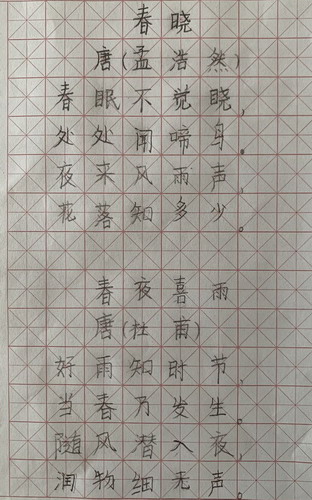 春晓
唐(孟浩然)
春眠不觉晓,
处处闻啼鸟。
夜来风雨声,
花落知多少。
春夜喜雨
唐(杜甫)
好雨知时节,
当春乃发生。
随风潜入夜,
润物细无声。